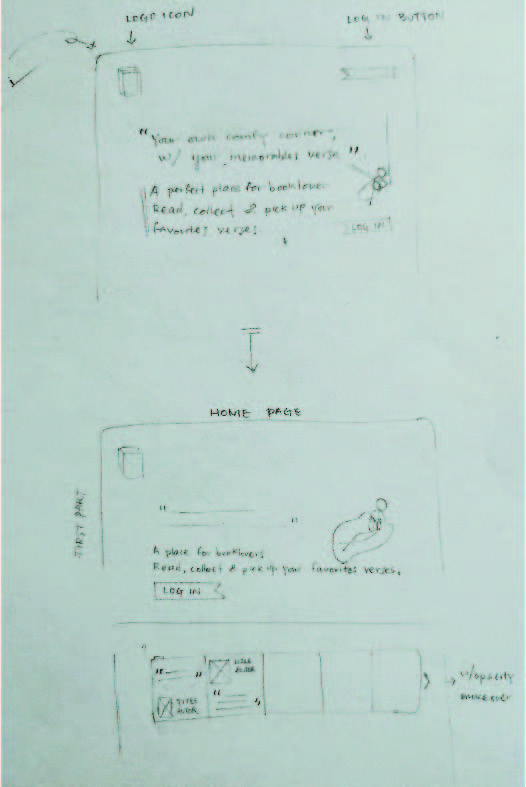 LOGO ICON
LOG IN BUTTON
"Your own comfy corner,
w/ your memorables verse"
A perfect place for booklover
Read, collect & pick up your
favorites verses.
LOG IN
HOME PAGE
FIRST PART
" "
A place for booklovers
Read, collect & pick up your favorites verses.
LOG IN
" "
TITLE
" "
TITLE
w/opacity